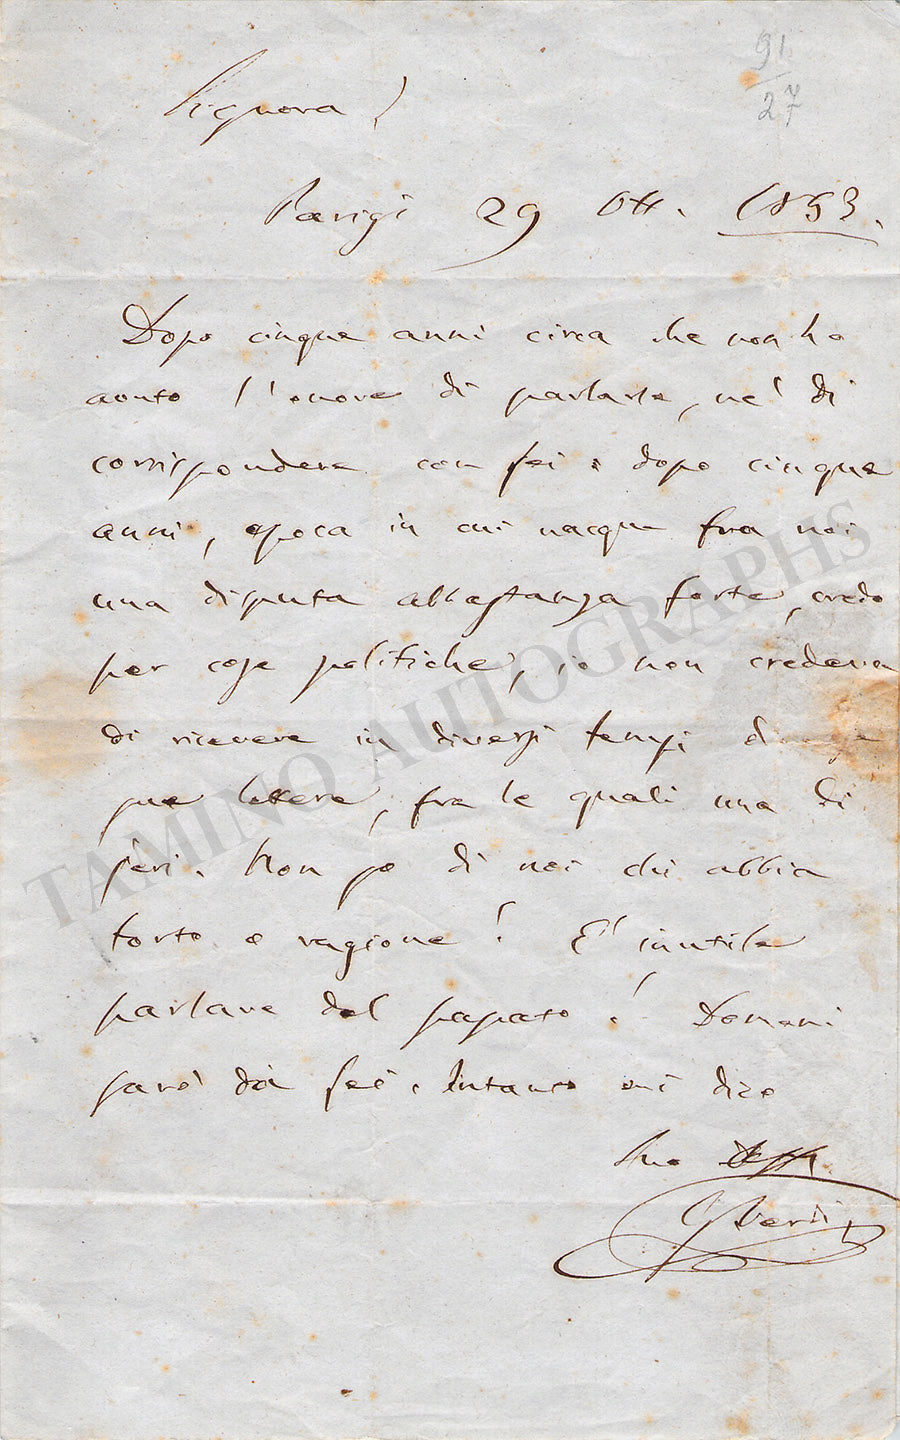 91
27
Signora!
Parigi 29 Ott. 1853.
Dopo cinque anni circa che non ho
avuto l'onore di parlarle, nè di
corrispondere con Lei; dopo cinque
anni, epoca in cui nacque fra noi
una disputa abbastanza forte, credo
per cose politiche, io non credeva
di ricevere in diversi tempi
sue lettere, fra le quali una di
jeri. Non so di noi chi abbia
torto o ragione! E' inutile
parlare del passato! Domani
sarò da Lei. Intanto mi dico
Suo Deff.
GVerdi
TAMINO AUTOGRAPHS